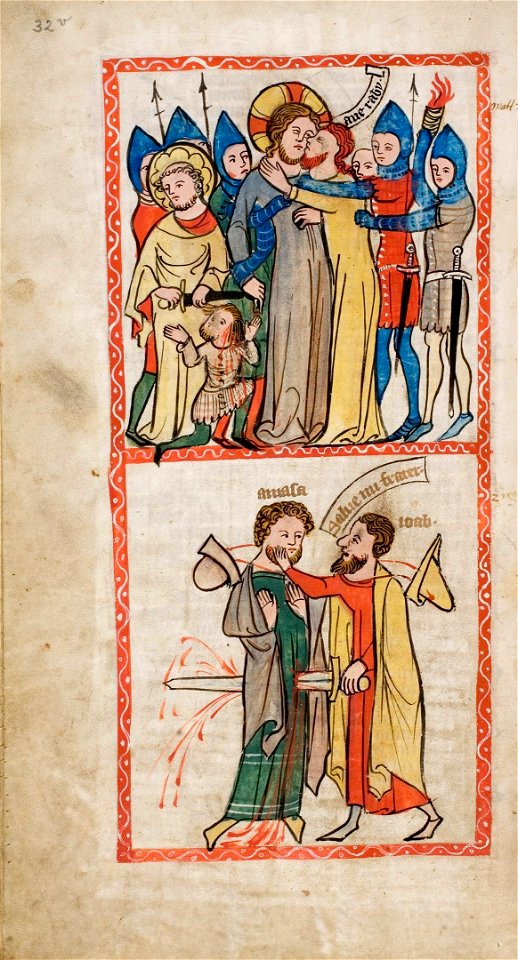 32v
Aue raby.
Matt
amasa
Salue mi frater.
ioab.